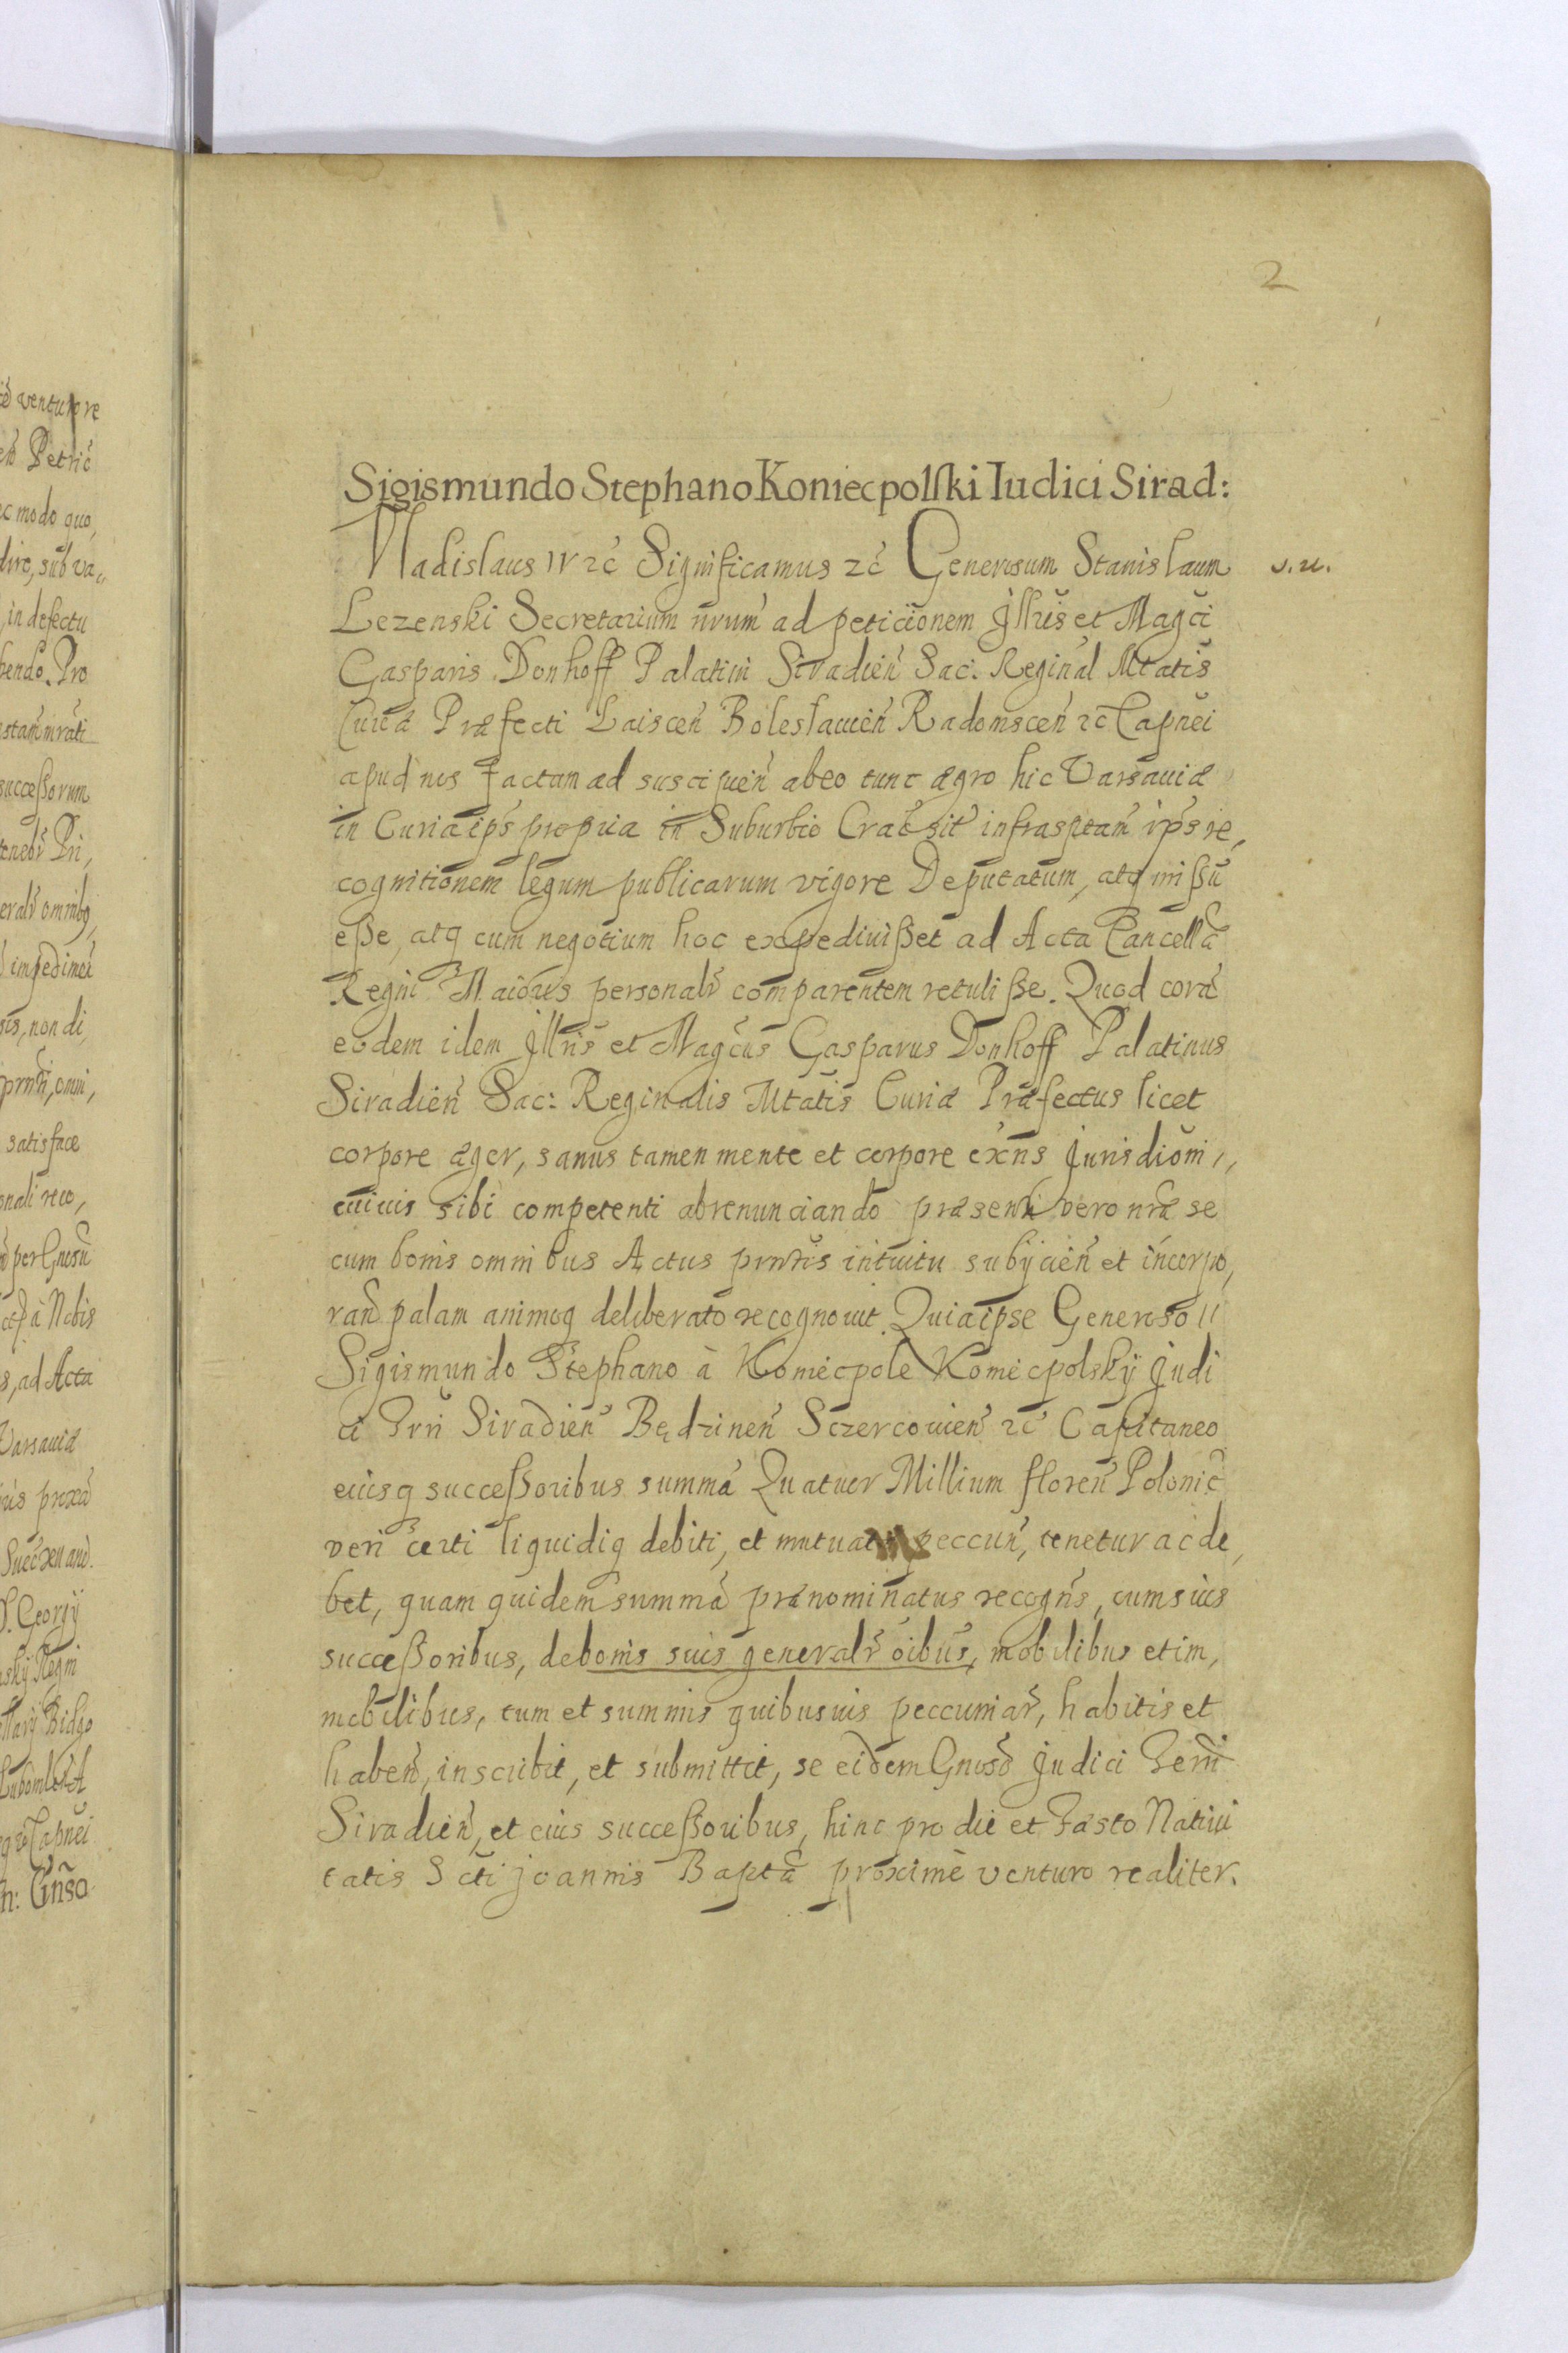 2
Sigismundo Stephano Koniecpolski Iudici Sirad:
Vladislaus IV zc̃ Significamus zc̃ Generosum Stanislaum
s. u.
Lezenski Secretarium nrum̃ ad peticionem Jllris̃ et Magci
Gasparis Donhoff Palatini Siradieñ Sac: Reginal Mtatis
Curiæ Præfecti Laisceñ Boleslauieñ Radomsceñ zc̃ Capnei
apud nos factam ad suscipieñ ab eo tunc ægro hic Varsauiæ
in Curia ips̃ propria in Suburbio Crac̃ sit̃ infrasptam̃ ips̃ re,
cognitionem legum publicarum vigore Deputatum, atq missũ
esse, atq cum negotium hoc expediuisset ad Acta Cancellæ
Regni Maioris personalr̃ comparentem retulisse. Quod corã
eodem idem Jllris̃ et Magcus̃ Gasparus Donhoff Palatinus
Siradieñ Sac: Reginalis Mtatis Curiæ Præfectus licet
corpore æger, sanus tamen mente et corpore exñs Jurisdioni,,
cuiuis sibi competenti abrenunciando præsenti vero nræ se
cum bonis omnibus Actus prntis̃ intuitu subijcieñ et incorpo,
rand̃ palam animoq deliberato recognouit. Quia ipse Generoso //
Sigismundo Stephano à Koniecpole Koniecpolskÿ Judi
ci Trri Siradieñ Będzineñ Sczercouieñ zc̃ Capitaneo
eiusq successoribus summã Quatuor Millium floreñ Polonic̃
veri certi liquidiq debiti, et mutuat peccuñ, tenetur ac de,
bet, quam quidem summã prænominatus recogñs, cum suis
successoribus, de bonis suis generalr̃ oibus̃, mobilibus et im,
mobilibus, tum et summis quibusuis peccuniar̃, habitis et
habeñ, inscribit, et submittit, se eidem Gnoso̊ Judici Terri
Siradieñ, et eius successoribus, hinc pro die et Fæsto Natiui
tatis Scti Joannis Baptæ proximè venturo realiter.